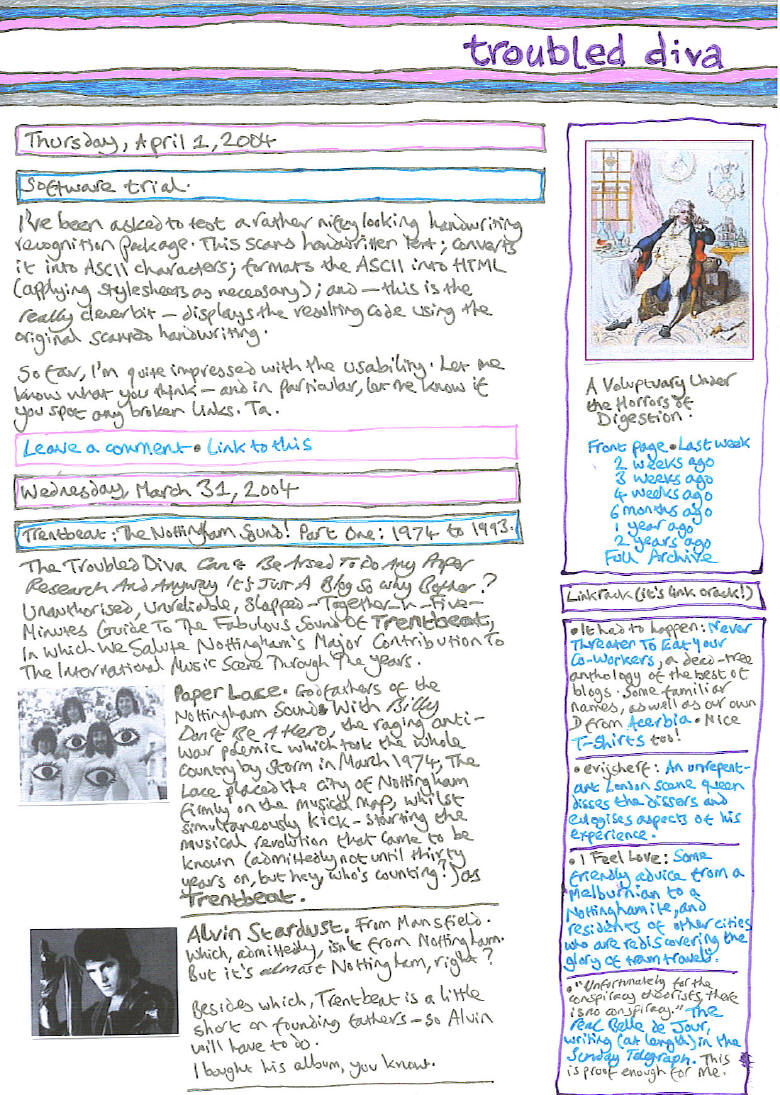 troubled diva
Thursday, April 1, 2004
Software trial.
I've been asked to test a rather nifty looking handwriting
recognition package. This scans handwritten text; converts
it into ASCII characters; formats the ASCII into HTML
(applying stylesheets as necessary); and – this is the
really clever bit – displays the resulting code using the
original scanned handwriting.
So far, I'm quite impressed with the usability. Let me
know what you think – and in particular, let me know if
you spot any broken links. Ta.
Leave a comment • Link to this
Wednesday, March 31, 2004
Trentbeat: The Nottingham Sound! Part One: 1974 to 1993.
The Troubled Diva Can't Be Arsed To Do Any Proper
Research And Anyway It's Just A Blog So Why Bother?
Unauthorised, Unreliable, Slapped-Together-In-Five-
Minutes Guide To The Fabulous Sound Of Trentbeat,
In Which We Salute Nottingham's Major Contribution To
The International Music Scene Through The Years.
Paper Lace. Godfathers of the
Nottingham Sound. With Billy
Don't Be A Hero, the raging anti-
war polemic which took the whole
country by storm in March 1974, The
Lace placed the city of Nottingham
firmly on the musical map, whilst
simultaneously kick-starting the
musical revolution that came to be
known (admittedly not until thirty
years on, but hey, who's counting!) as
Trentbeat.
Alvin Stardust. From Mansfield.
Which, admittedly, isn't from Nottingham.
But it's almost Nottingham, right?
Besides which, Trentbeat is a little
short on founding fathers – so Alvin
will have to do.
I bought his album, you know.
A Voluptuary Under
the Horrors of
Digestion.
Front page • Last week
2 weeks ago
3 weeks ago
4 weeks ago
6 months ago
1 year ago
2 years ago
Full Archive
Linkrack (it's link crack!)
• It had to happen: Never
Threaten To Eat Your
Co-Workers, a dead-tree
anthology of the best of
blogs. Some familiar
names, as well as our own
D from Acerbia. Nice
T-Shirts too!
• evilscherf: An unrepent-
ant London scene queen
disses the dissers and
eulogises aspects of his
experience.
• I Feel Love: Some
friendly advice from a
Melburnian to a
Nottinghamite, and
residents of other cities
who are rediscovering the
glory of tram travel.
• "Unfortunately for the
conspiracy theorists, there
is no conspiracy." The
real Belle de Jour,
writing (at length) in the
Sunday Telegraph. This
is proof enough for me.